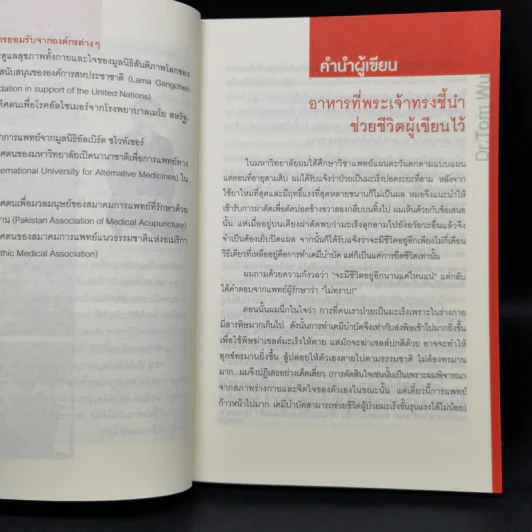 รยอมรับจากองค์กรต่างๆ
ดูแลสุขภาพทั้งกายและใจของมูลนิธิสันติภาพโลกของ
สนับสนุนขององค์การสหประชาชาติ (Lama Gangchen
dation in support of the United Nations)
ทิศตนเพื่อโรคอัลไซเมอร์จากโรงพยาบาลเมโย สหรัฐ
าการแพทย์จากมูลนิธิอัลเบิร์ต ชไวท์เซอร์
ศตนของมหาวิทยาลัยเปิดนานาชาติเพื่อการแพทย์ทาง
ternational University for Alternative Medicines) ใน
ศตนเพื่อมวลมนุษย์ของสมาคมการแพทย์ที่รักษาด้วย
าน (Pakistan Association of Medical Acupuncture)
ศตนของสมาคมการแพทย์แนวธรรมชาติแห่งอเมริกา
thic Medical Association)
คำนำผู้เขียน
Dr.Tom Wu
อาหารที่พระเจ้าทรงชี้นำ
ช่วยชีวิตผู้เขียนไว้
ในมหาวิทยาลัยผมได้ศึกษาวิชาแพทย์แผนตะวันตกตามแบบแผน
แต่ตอนที่อายุสามสิบ ผมได้รับแจ้งว่าป่วยเป็นมะเร็งปอดระยะที่สาม หลังจาก
ใช้ยาใหม่ที่สุดและมีฤทธิ์แรงที่สุดหลายขนานก็ไม่เป็นผล หมอจึงแนะนำให้
เข้ารับการผ่าตัดเพื่อตัดปอดข้างขวาสองกลีบบนทิ้งไป ผมเห็นด้วยกับข้อเสนอ
นั้น แต่เมื่ออยู่บนเตียงผ่าตัดพบว่ามะเร็งลุกลามไปยังอวัยวะอื่นแล้วจึง
จำเป็นต้องเย็บปิดแผล จากนั้นก็ได้รับแจ้งว่าจะมีชีวิตอยู่อีกเพียงไม่กี่เดือน
วิธีเดียวที่เหลืออยู่คือการทำเคมีบำบัด แต่ก็เป็นแค่การยืดชีวิตเท่านั้น
ผมถามด้วยความกังวลว่า “จะมีชีวิตอยู่อีกนานแค่ไหนแน่” แต่กลับ
ได้คำตอบจากแพทย์ผู้รักษาว่า “ไม่ทราบ!”
ตอนนั้นผมนึกในใจว่า การที่คนเราป่วยเป็นมะเร็งเพราะในร่างกาย
มีสารพิษมากเกินไป ดังนั้นการทำเคมีบำบัดจึงเท่ากับส่งพิษเข้าไปมากยิ่งขึ้น
เพื่อใช้พิษฆ่าเซลล์มะเร็งให้ตาย แต่มักจะฆ่าเซลล์ปกติด้วย อาจจะทำให้
ทุกข์ทรมานยิ่งขึ้น สู้ปล่อยให้ตัวเองตายไปตามธรรมชาติ ไม่ต้องทรมาน
มาก...ผมจึงปฏิเสธอย่างเด็ดเดี่ยว (การตัดสินใจเช่นนั้นเป็นเพราะผมพิจารณา
จากสภาพร่างกายและจิตใจของตัวเองในขณะนั้น แต่เดี๋ยวนี้การแพทย์
ก้าวหน้าไปมาก เคมีบำบัดสามารถช่วยชีวิตผู้ป่วยมะเร็งขั้นรุนแรงได้ไม่น้อย)